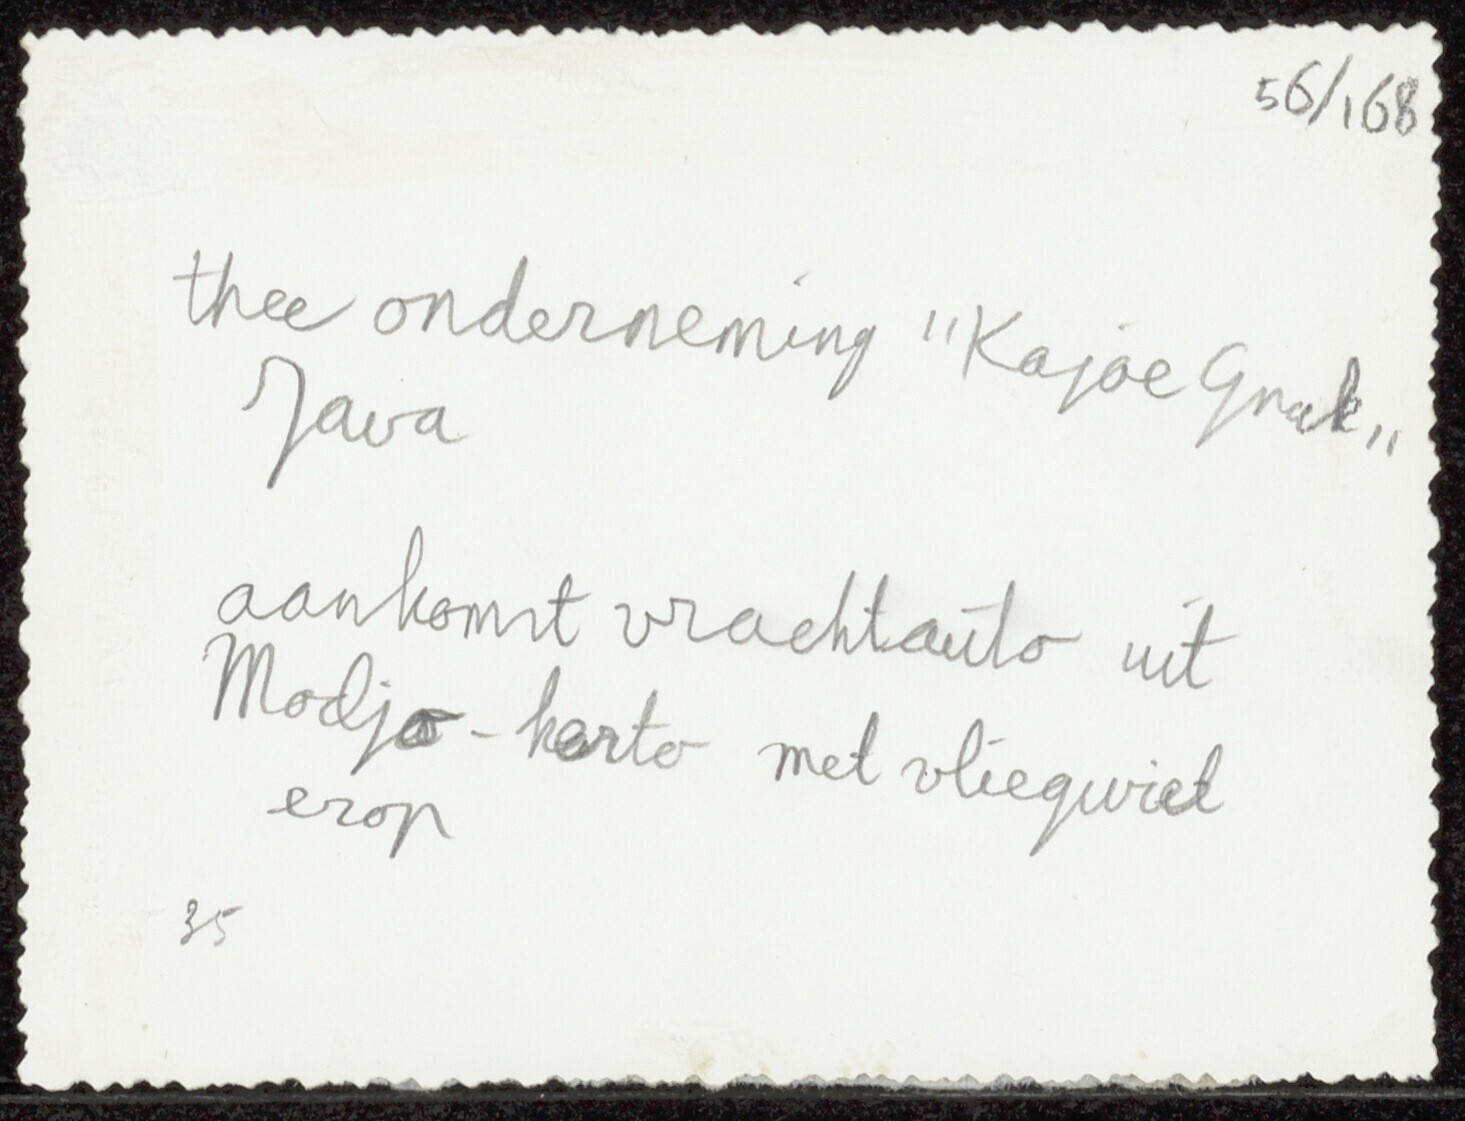 56/168
thee onderneming "Kajoe Gnak"
Java
aankomst vrachtauto uit
Modjo-kerto met vliegwiel
erop
35